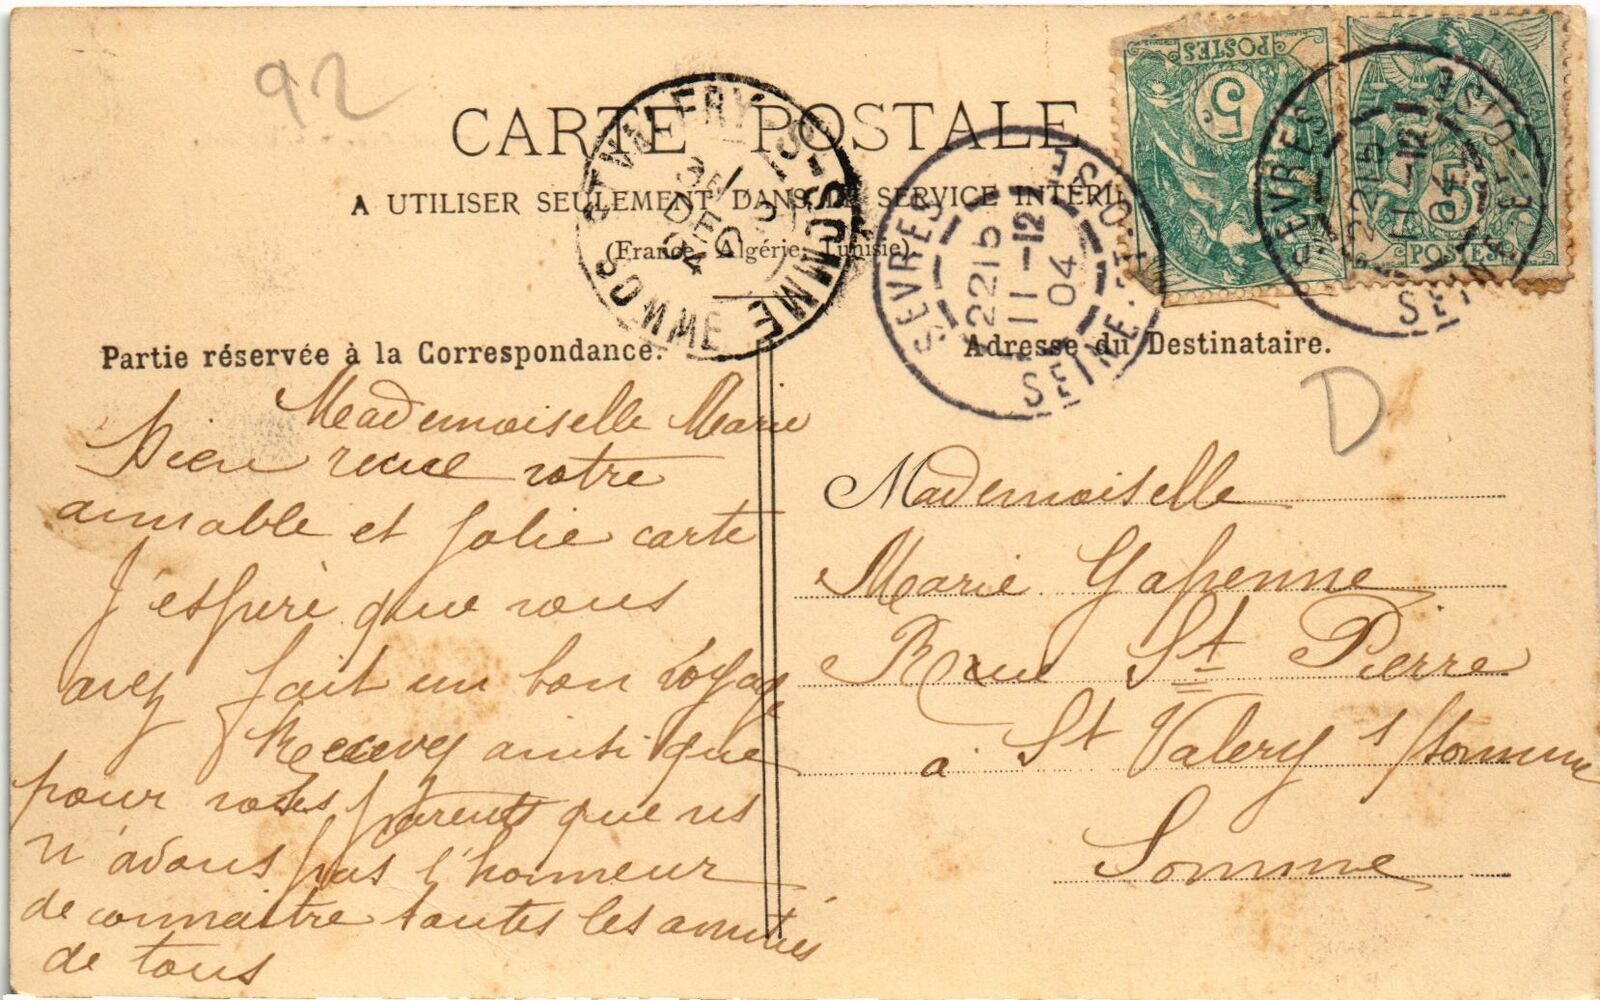 92
CARTE POSTALE
A UTILISER SEULEMENT DANS LE SERVICE INTÉRI
(France, Algérie, Tunisie)
ST VALERY-S-SOMME
SOMME
31
DEC
04
SEVRES
SEINE-ET-OISE
22 15
11-12
04
POSTES
5
SEVRES
SEINE-ET-OISE
22 15
11-12
04
FRANÇAISE
5
POSTES
Partie réservée à la Correspondance.
Mademoiselle Marie
Bien recue votre
aimable et jolie carte
J'espère que vous
avez fait un bon voyage
Recevez ainsi que
pour vos parents que ns
n'avons pas l'honneur
de connaitre toutes les amitiés
de tous
Adresse du Destinataire.
D
Mademoiselle
Marie Gapenne
Rue St Pierre
à St Valery s/ Somme
Somme